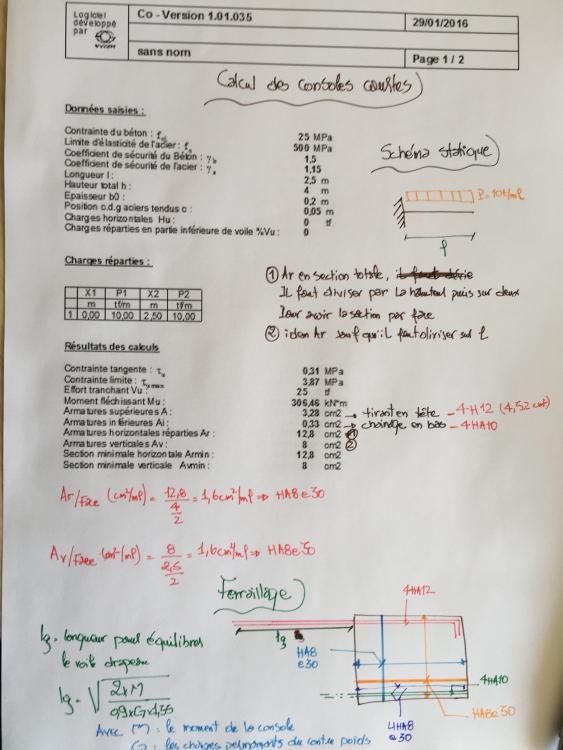 Logiciel
développé
par
Co - Version 1.01.035
29/01/2016
sans nom
Page 1 / 2
Calcul des consoles courtes
Données saisies :
Contrainte du béton : f 25 MPa
Limite d'élasticité de l'acier : f 500 MPa
Coefficient de sécurité du Béton : γb 1,5
Coefficient de sécurité de l'acier : γs 1,15
Longueur l : 2,5 m
Hauteur total h : 4 m
Epaisseur b0 : 0,2 m
Position c.d.g aciers tendus c : 0,05 m
Charges horizontales Hu : 0 tf
Charges réparties en partie inférieure de voile %Vu : 0
Schéma statique
P=10t/ml
l
Charges réparties :
X1 P1 X2 P2
m tf/m m tf/m
1 0,00 10,00 2,50 10,00
① Ar en section totale,
IL faut diviser par la hauteur puis sur deux
pour avoir la section par face
② idem Ar sauf qu'il faut diviser sur l
Résultats des calculs
Contrainte tangente : τu 0,31 MPa
Contrainte limite : τu max 3,87 MPa
Effort tranchant Vu : 25 tf
Moment fléchissant Mu : 306,46 kN*m
Armatures supérieures A : 3,28 cm2 → tirant en tête - 4-H12 (4,52 cm²)
Armatures inférieures Ai : 0,33 cm2 → chainage en bas - 4HA10
Armatures horizontales réparties Ar : 12,8 cm2 ①
Armatures verticales Av : 8 cm2 ②
Section minimale horizontale Armin : 12,8 cm2
Section minimale verticale Avmin : 8 cm2
Ar/Face (cm²/ml) = 12,8 / 4 / 2 = 1,6cm²/ml => HA8e30
Av/Face (cm²/ml) = 8 / 2,5 / 2 = 1,6cm²/ml => HA8e30
Ferraillage
4HA12
lg
HA8
e30
4HA10
HA8e30
4HA8
e30
lg = longueur pour équilibrer
le voile drapeau
lg = √ 2xM / 0,9xGx1,35
Avec (M) : le moment de la console
(G) : les charges permanents du contre poids